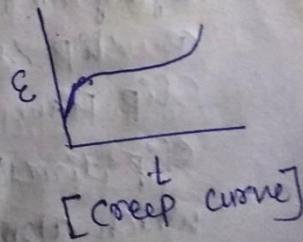 ε
t
[Creep curve]